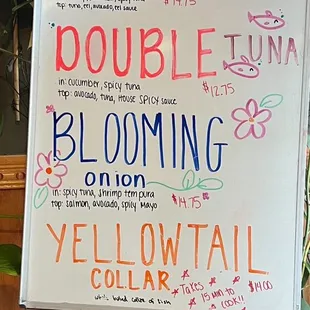 spicy tuna
top: tuna, eel, avocado, eel sauce
$14.75
DOUBLE TUNA
in: cucumber, spicy tuna
top: avocado, tuna, HOUSE SPICY sauce
$12.75
BLOOMING
onion
in: spicy tuna, shrimp tempura
top: salmon, avocado, spicy mayo
$14.75
YELLOWTAIL
COLLAR
*Takes
15 min to
cook!!
$14.00